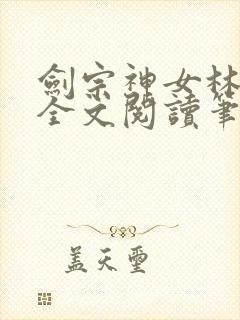 劍宗神女林
全文閱讀筆
蓋天璽